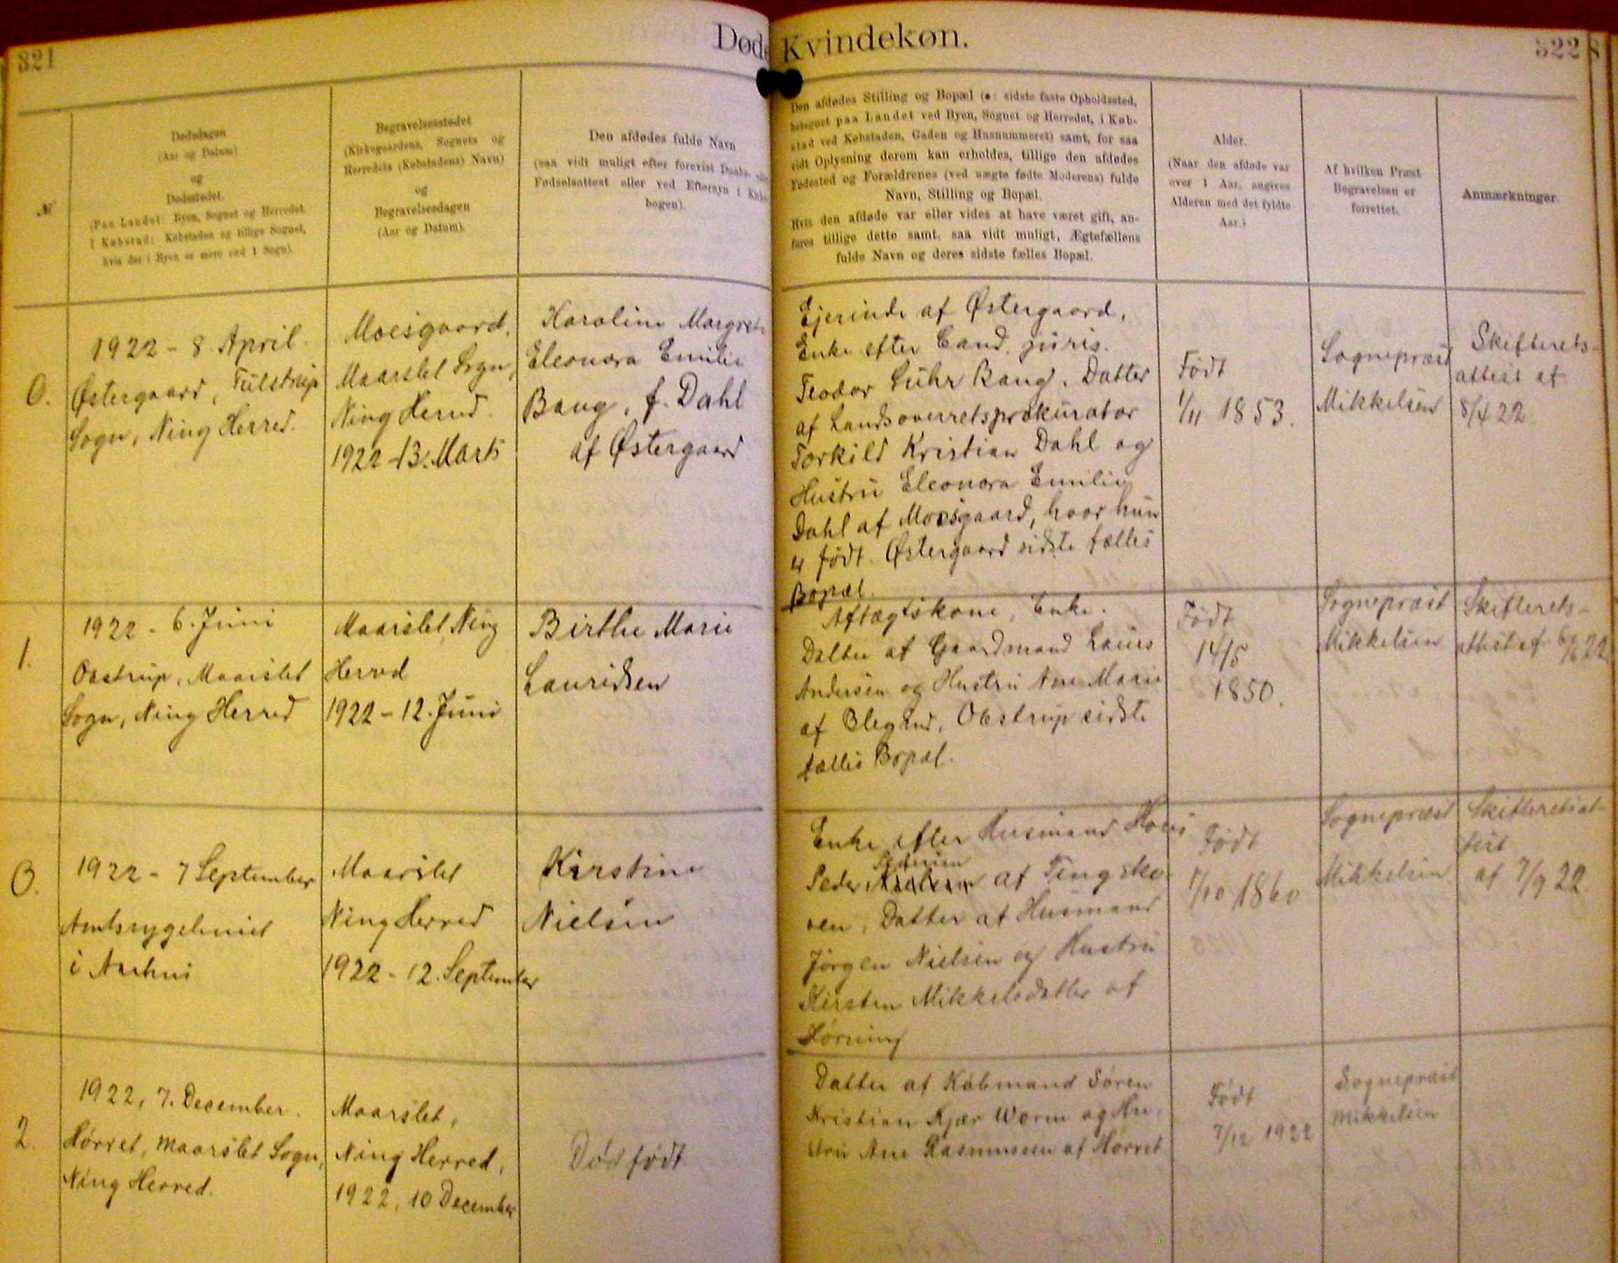 321
Døde Kvindekøn.
322
№
Dødsdagen
(Aar og Datum)
og
Dødsstedet.
(Paa Landet: Byen, Sognet og Herredet.
I Købstad: Købstaden og tillige Sognet,
hvis der i Byen er mere end 1 Sogn).
Begravelsesstedet
(Kirkegaardens, Sognets og
Herredets (Købstadens) Navn)
og
Begravelsesdagen
(Aar og Datum).
Den afdødes fulde Navn
(saa vidt muligt efter forevist Daabs- eller
Fødselsattest eller ved Eftersyn i Kirke-
bogen).
Den afdødes Stilling og Bopæl (ɔ: sidste faste Opholdssted,
betegnet paa Landet ved Byen, Sognet og Herredet, i Køb-
stad ved Købstaden, Gaden og Husnummeret) samt, for saa
vidt Oplysning derom kan erholdes, tillige den afdødes
Fødested og Forældrenes (ved uægte fødte Moderens) fulde
Navn, Stilling og Bopæl.
Hvis den afdøde var eller vides at have været gift, an-
føres tillige dette samt, saa vidt muligt, Ægtefællens
fulde Navn og deres sidste fælles Bopæl.
Alder.
(Naar den afdøde var
over 1 Aar, angives
Alderen med det fyldte
Aar.)
Af hvilken Præst
Begravelsen er
forrettet.
Anmærkninger.
0.
1922 - 8. April.
Østergaard, Tulstrup
Sogn, Ning Herred.
Moesgaard,
Maarslet Sogn,
Ning Herred.
1922 - 13. Marts
Karoline Margrete
Eleonora Emilie
Bang, f. Dahl
af Østergaard
Ejerinde af Østergaard,
Enke efter Cand. juris.
Teodor Suhr Bang. Datter
af Landsoverretsprokurator
Torkild Kristian Dahl og
Hustru Eleonora Emilie
Dahl af Moesgaard, hvor hun
er født. Østergaard sidste fælles
Bopæl.
Født
1/11 1853.
Sognepræst
Mikkelsen
Skifterets-
attest af
8/4 22
1.
1922 - 6. Juni
Obstrup, Maarslet
Sogn, Ning Herred
Maarslet, Ning
Herred
1922 - 12. Juni
Birthe Marie
Lauridsen
Aftægtskone, Enke.
Datter af Gaardmand Laurs
Andersen og Hustru Ane Marie
af Blegind, Obstrup sidste
fælles Bopæl.
Født
14/5
1850.
Sognepræst
Mikkelsen
Skifterets-
attest af 6/6 22
0.
1922 - 7 September
Amtssygehuset
i Aarhus
Maarslet
Ning Herred
1922 - 12. September
Kirstine
Nielsen
Enke efter Husmand Hans
Pedersen
Peder Nielsen af Tingsko
ven, Datter af Husmand
Jørgen Nielsen og Hustru
Kirsten Mikkelsdatter af
Hørning
Født
1/10 1860
Sognepræst
Mikkelsen
Skifteretsat-
test
af 7/9 22.
2.
1922, 7. December.
Hørret, Maarslet Sogn,
Ning Herred.
Maarslet,
Ning Herred,
1922, 10 December
Dødfødt
Datter af Købmand Søren
Kristian Kjær Worm og Hu-
stru Ane Rasmussen af Hørret
Født
7/12 1922
Sognepræst
Mikkelsen